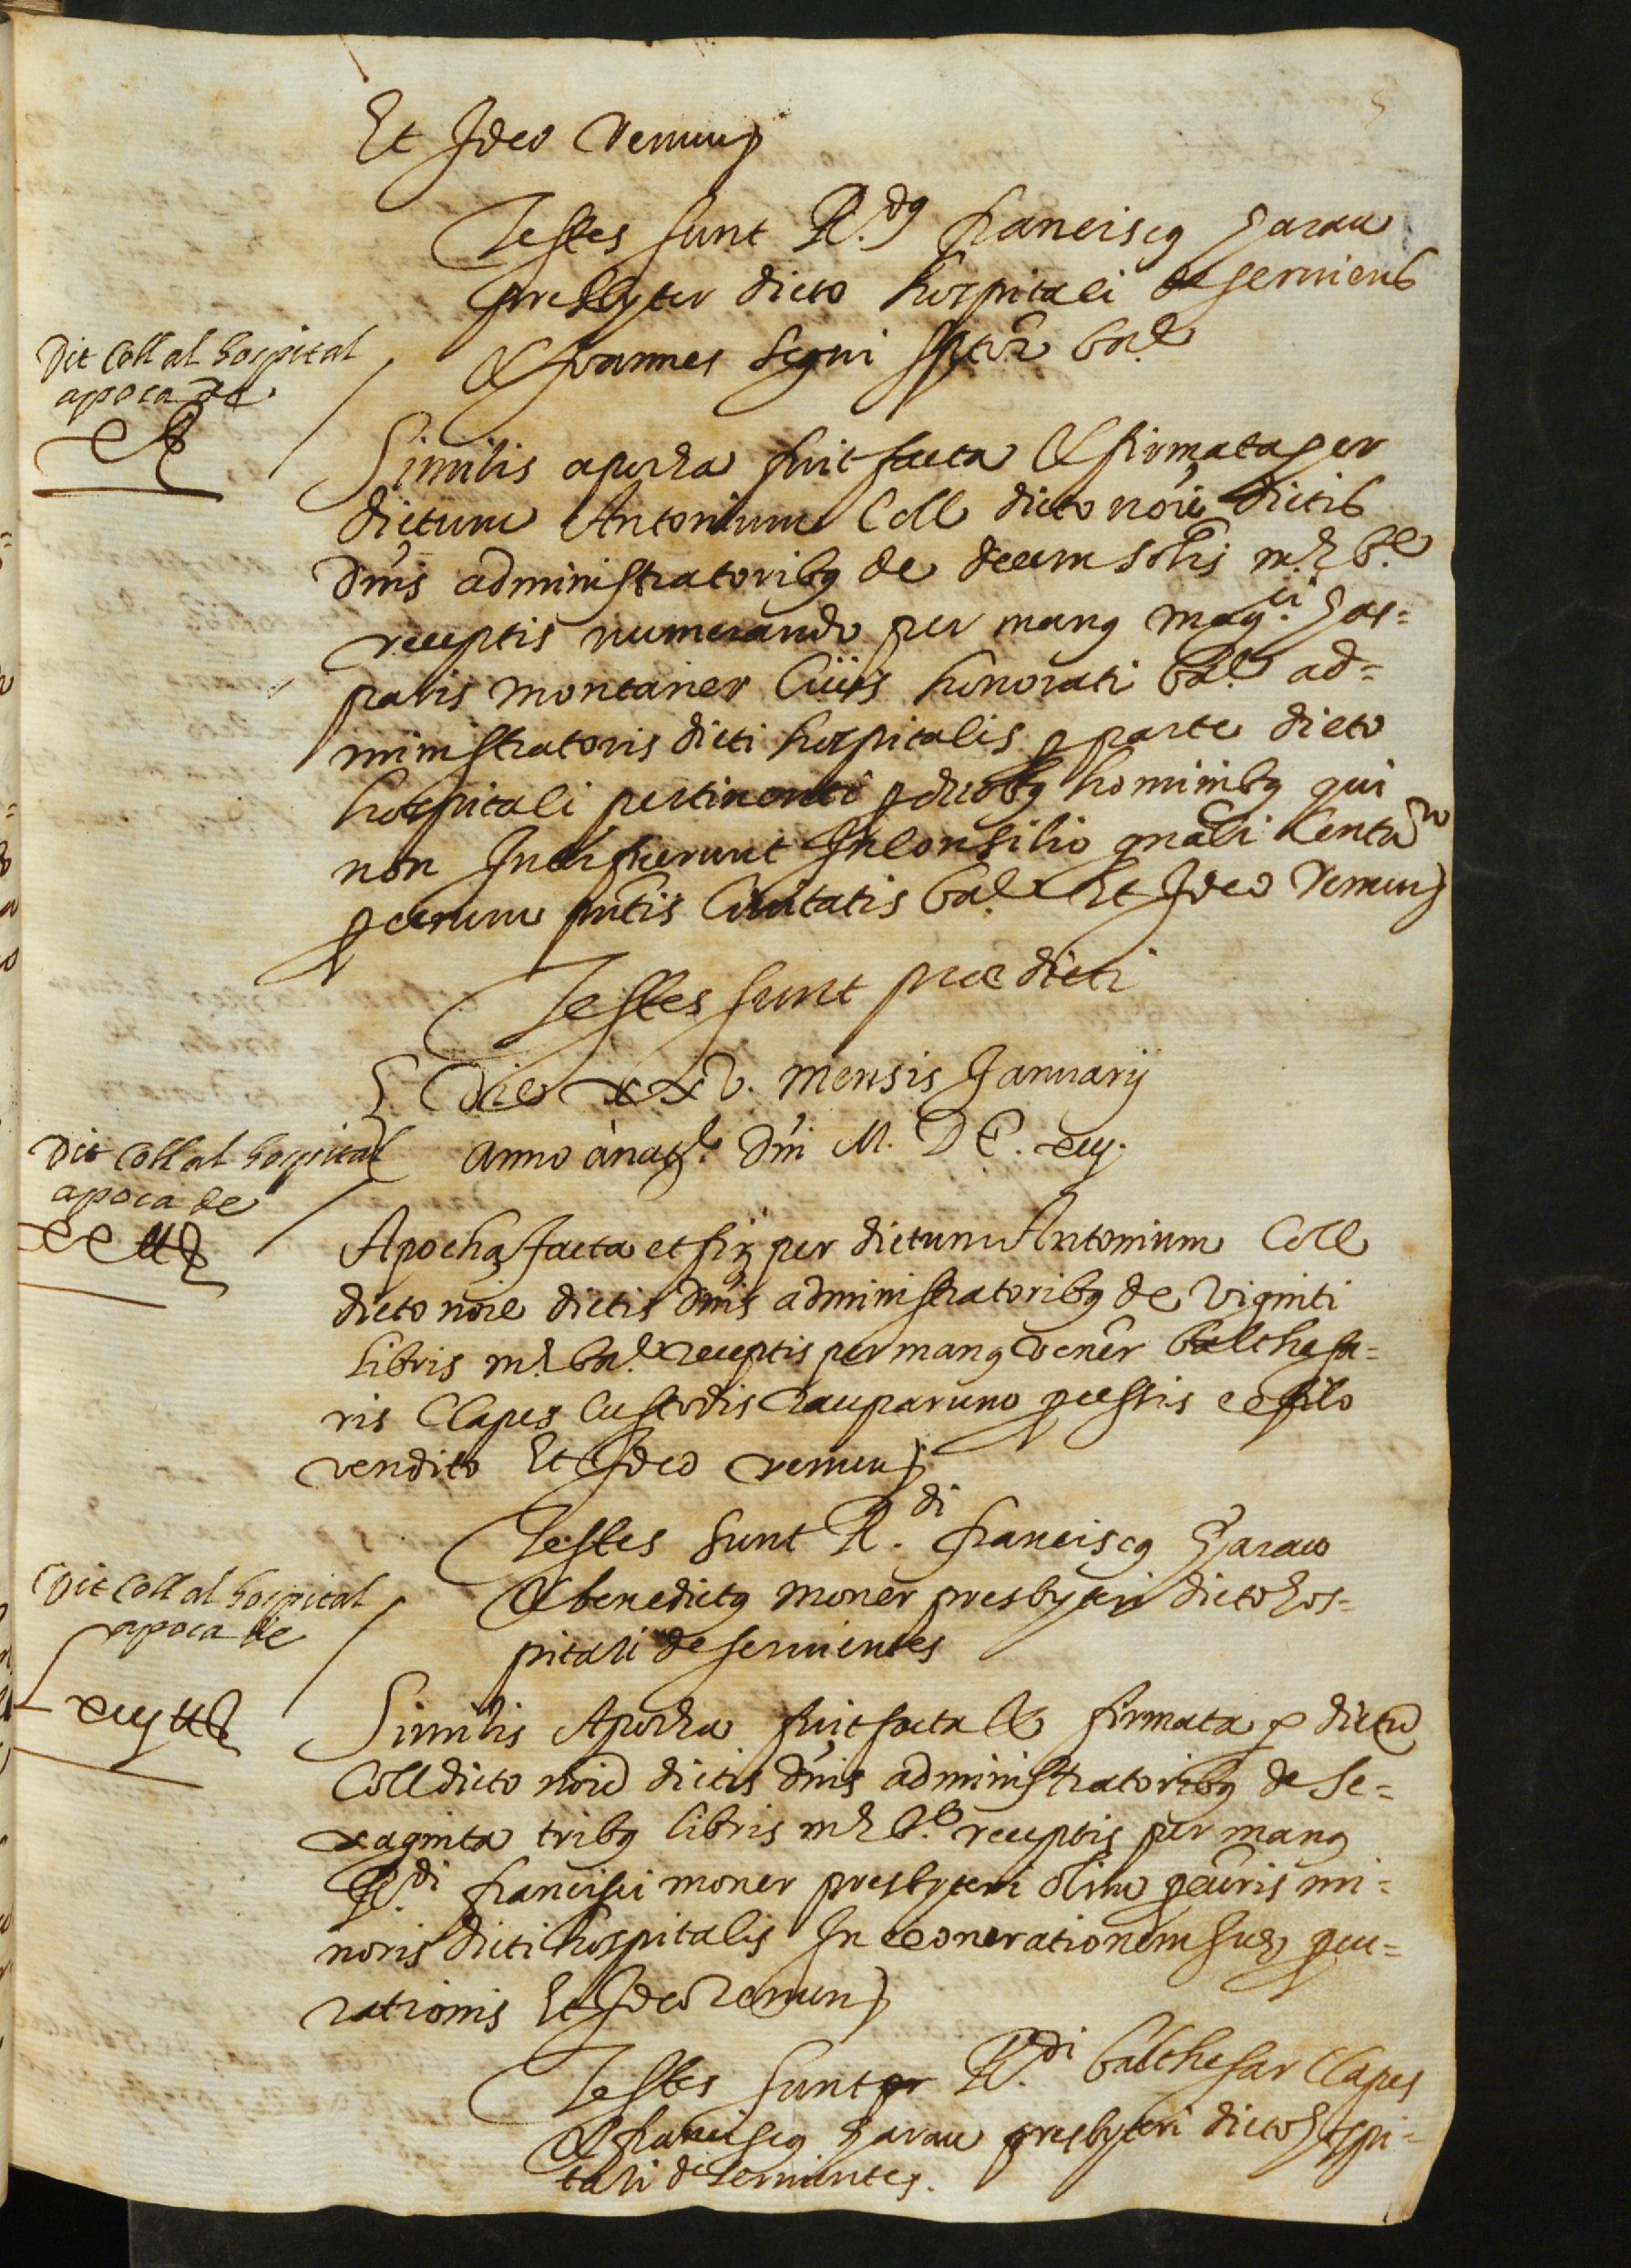 5
Et Ideo Renun)
Testes sunt R.dus franciscus Garau
presbyter dicto hospitali deseruiens
& Joannes Segui sptor bar.
Dit Coll al hospital
apoca de
Similis apocha fuit facta & firmata per
dictum Antonium Coll dicto nōie dictis
Dnis administratoribus de decem solis m. b.e
receptis numerando per manus mag.ci Gas=
paris Montaner Ciuis honorati bar.e ad=
ministratoris dicti hospitalis p parte dicto
hospitali pertinenti p duobus hominibus qui
non Interfuerunt In Consilio gnali Centu
p eorum ptis Ciuitatis bar.e Et Ideo Renun)
Testes sunt prædicti
Die xxv. mensis Januarij
anno a nat.e Dni M. DC. xiij.
Dit Coll al hospital
apoca de
Apocha facta et fir. per dictum Antonium Coll
dicto nōie dictis Dnis administratoribus de Viginti
libris m. bar.e receptis per manus vener balthesa=
ris Clapes Custodis p cessis ex filo
vendito Et Ideo renun)
Testes sunt R.di franciscus Garau
& benedictus Moner presbyteri dicto hos=
pitali deseruientes
Dit Coll al hospital
apoca de
Similis Apocha fuit facta & firmata p dictū
Coll dicto nōie dictis Dnis administratoribus de se=
xaginta tribus libris m. b.e receptis per manus
R.di francisci moner presbyteri olim pcūris mi=
noris dicti hospitalis In exonerationem suæ pcu=
rationis Et Ideo renun)
Testes sunt R.di balthesar Clapes
& franciscus Garau presbyteri dicto hospi=
tali deseruientes.